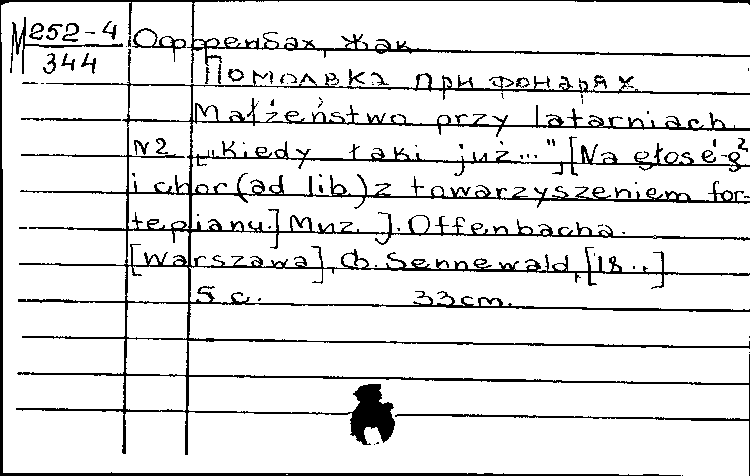 М 252-4
344
Оффенбах, Жак
Помолвка при фонарях
Małżeństwo przy latarniach
N2 „Kiedy taki już..." , [Na głos é-g²
i chor (ad lib.) z towarzyszeniem for-
tepianu.] Muz. J. Offenbacha.
[Warszawa], Sennewald, [18..]
5 с. 33 cm.